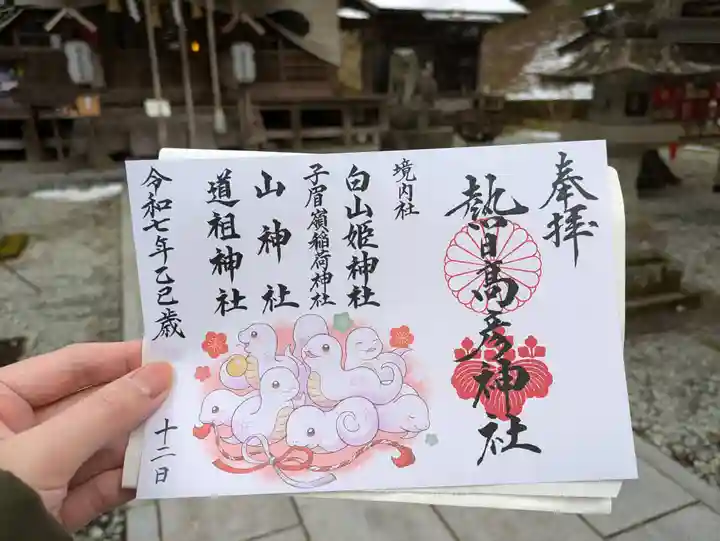 奉拝
熱日高彦神社
境内社
白山姫神社
子眉嶺稲荷神社
山神社
道祖神社
令和七年乙巳歳
十二日